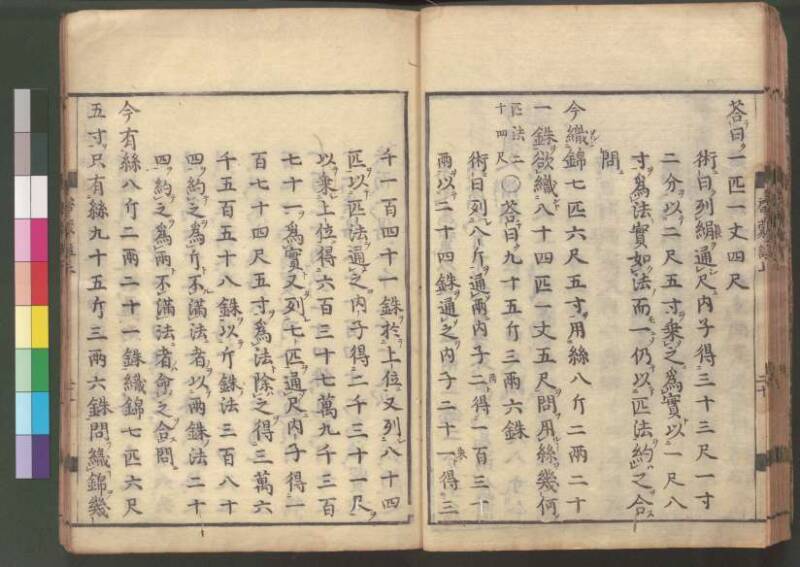 答曰一匹一丈四尺
術曰列絹通尺内子得三十三尺一寸
二分以二尺五寸乗之為實以一尺八
寸為法實如法而一仍以匹法約之合
問
今織錦七匹六尺五寸用絲八斤二兩二十
一銖欲織八十四匹一丈五尺問用絲幾何
匹法二
十四尺
〇答曰九十五斤三兩六銖
術曰列八斤通兩内子二兩得一百三十
兩以二十四銖通之内子二十一銖得三
千一百四十一銖於上位又列八十四
匹以匹法通之内子得二千三十一尺
以乗上位得六百三十七萬九千三百
七十一為實又列七匹通尺内子得一
百七十四尺五寸為法除之得三萬六
千五百五十八銖以斤銖法三百八十
四約之為斤不滿法者以兩銖法二十
四約之為兩不滿法者命之合問
今有絲八斤二兩二十一銖織錦七匹六尺
五寸只有絲九十五斤三兩六銖問織錦幾